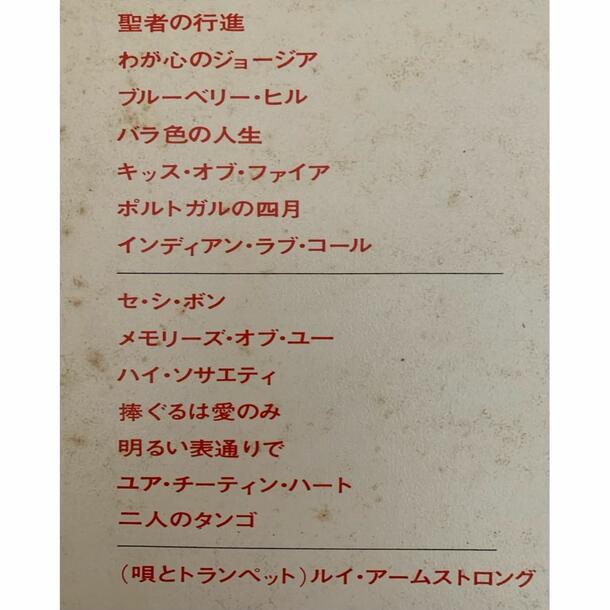 聖者の行進
わが心のジョージア
ブルーベリー・ヒル
バラ色の人生
キッス・オブ・ファイア
ポルトガルの四月
インディアン・ラブ・コール
セ・シ・ボン
メモリーズ・オブ・ユー
ハイ・ソサエティ
捧ぐるは愛のみ
明るい表通りで
ユア・チーティン・ハート
二人のタンゴ
（唄とトランペット）ルイ・アームストロング